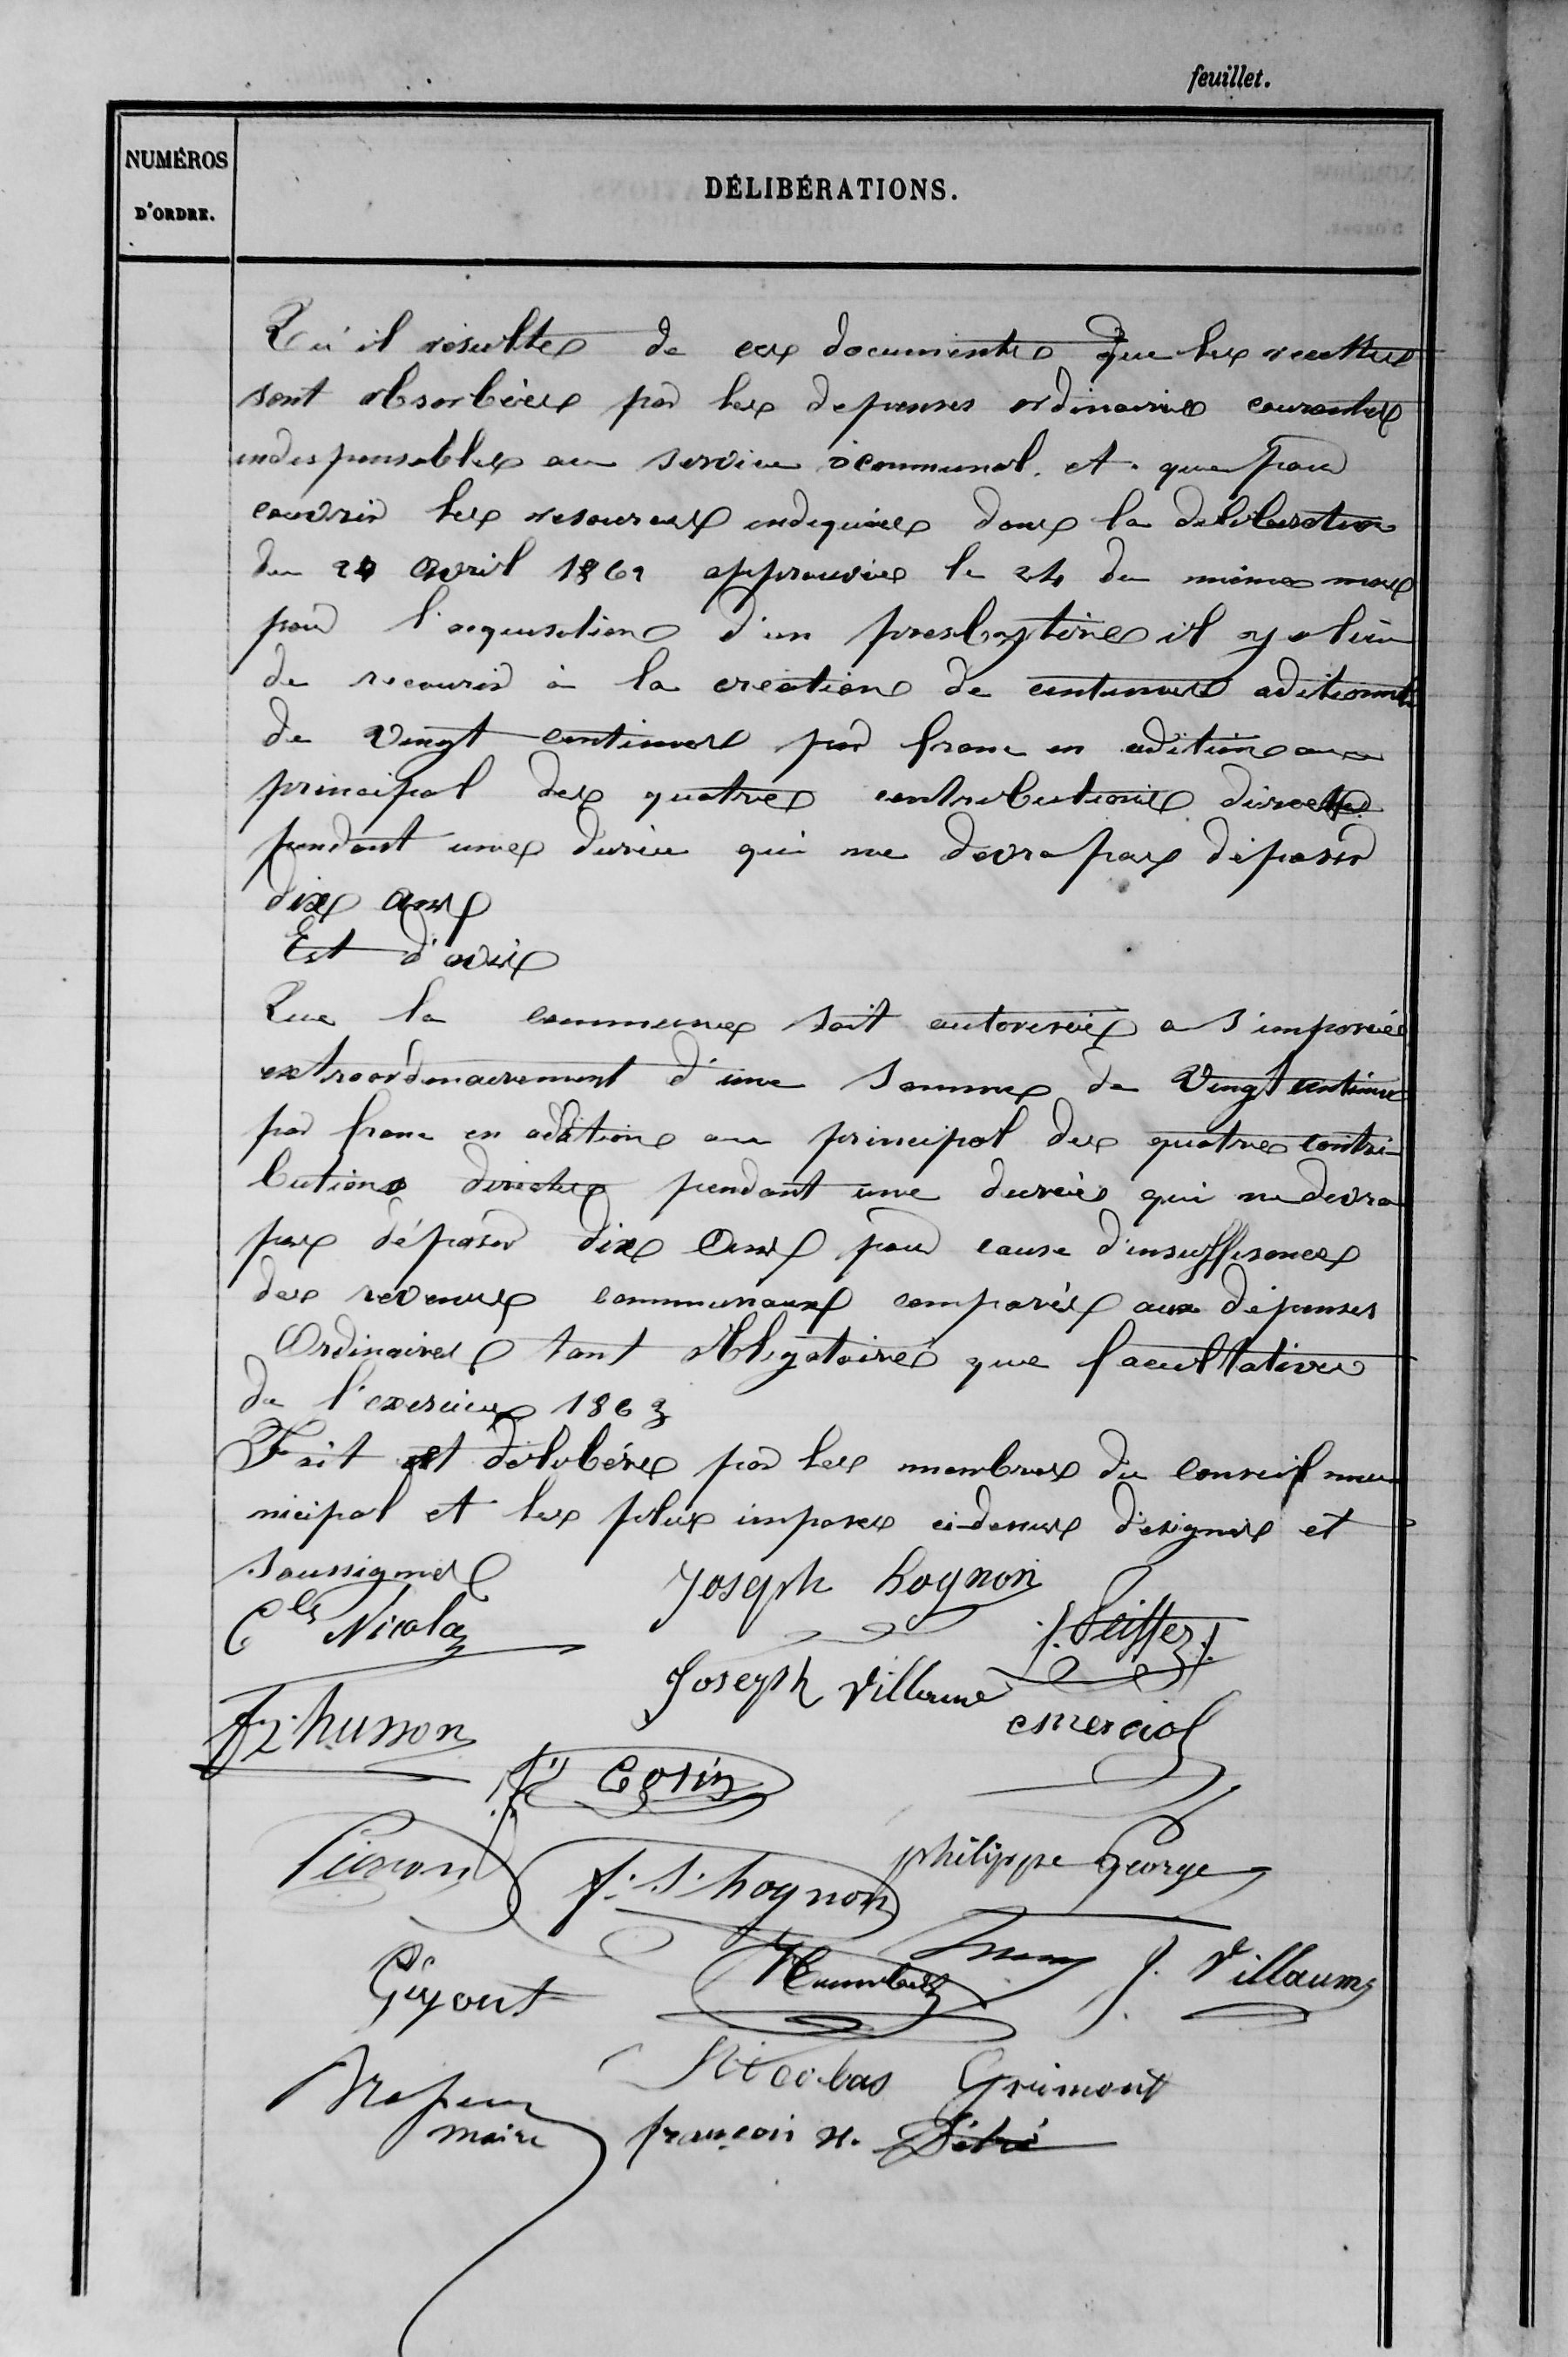 feuillet.
NUMÉROS
D'ORDRE.
DÉLIBÉRATIONS.
Qu'il résulte de ces documents que les recettes
sont absorbées par les depenses ordinaires courantes
indispensables au service communal et que pour
couvrir les resources indiquées dans la deliberation
du 20 avril 1862 approuvée le 24 du même mois
pour l'aquisition d'un presbytère il y a lieu
de recourir à la création de centimes aditionnels
de vingt centimes par franc en adition au
principal des quatres contributions directes
pendant une durée qui ne devra pas dépaser
dix ans
Est d'avis
Que la commune soit autorisée a s'imposée
extraordinairement d'une somme de vingt centimes
par franc en adition au principal des quatres contri-
butions directes pendant une durée qui ne devra
pas dépaser dix ans pour cause d'insuffisance
des revenus communaux comparés aux dépenses
Ordinaires tant obligatoires que facultatives
de l'exercice 1863
Fait et délibéré par les membres du conseil mu
nicipal et les plus imposes ci-desus désignes et
soussignes
Joseph hognon
Cles Nicolas
J. Peiffer
Joseph Villaume
fx husson
Cosin
Pierson
f. S. hognon
philippe George
Géyout
Humbert
J. Villaume
Nicolas Grimont
maire
françois n. Détré